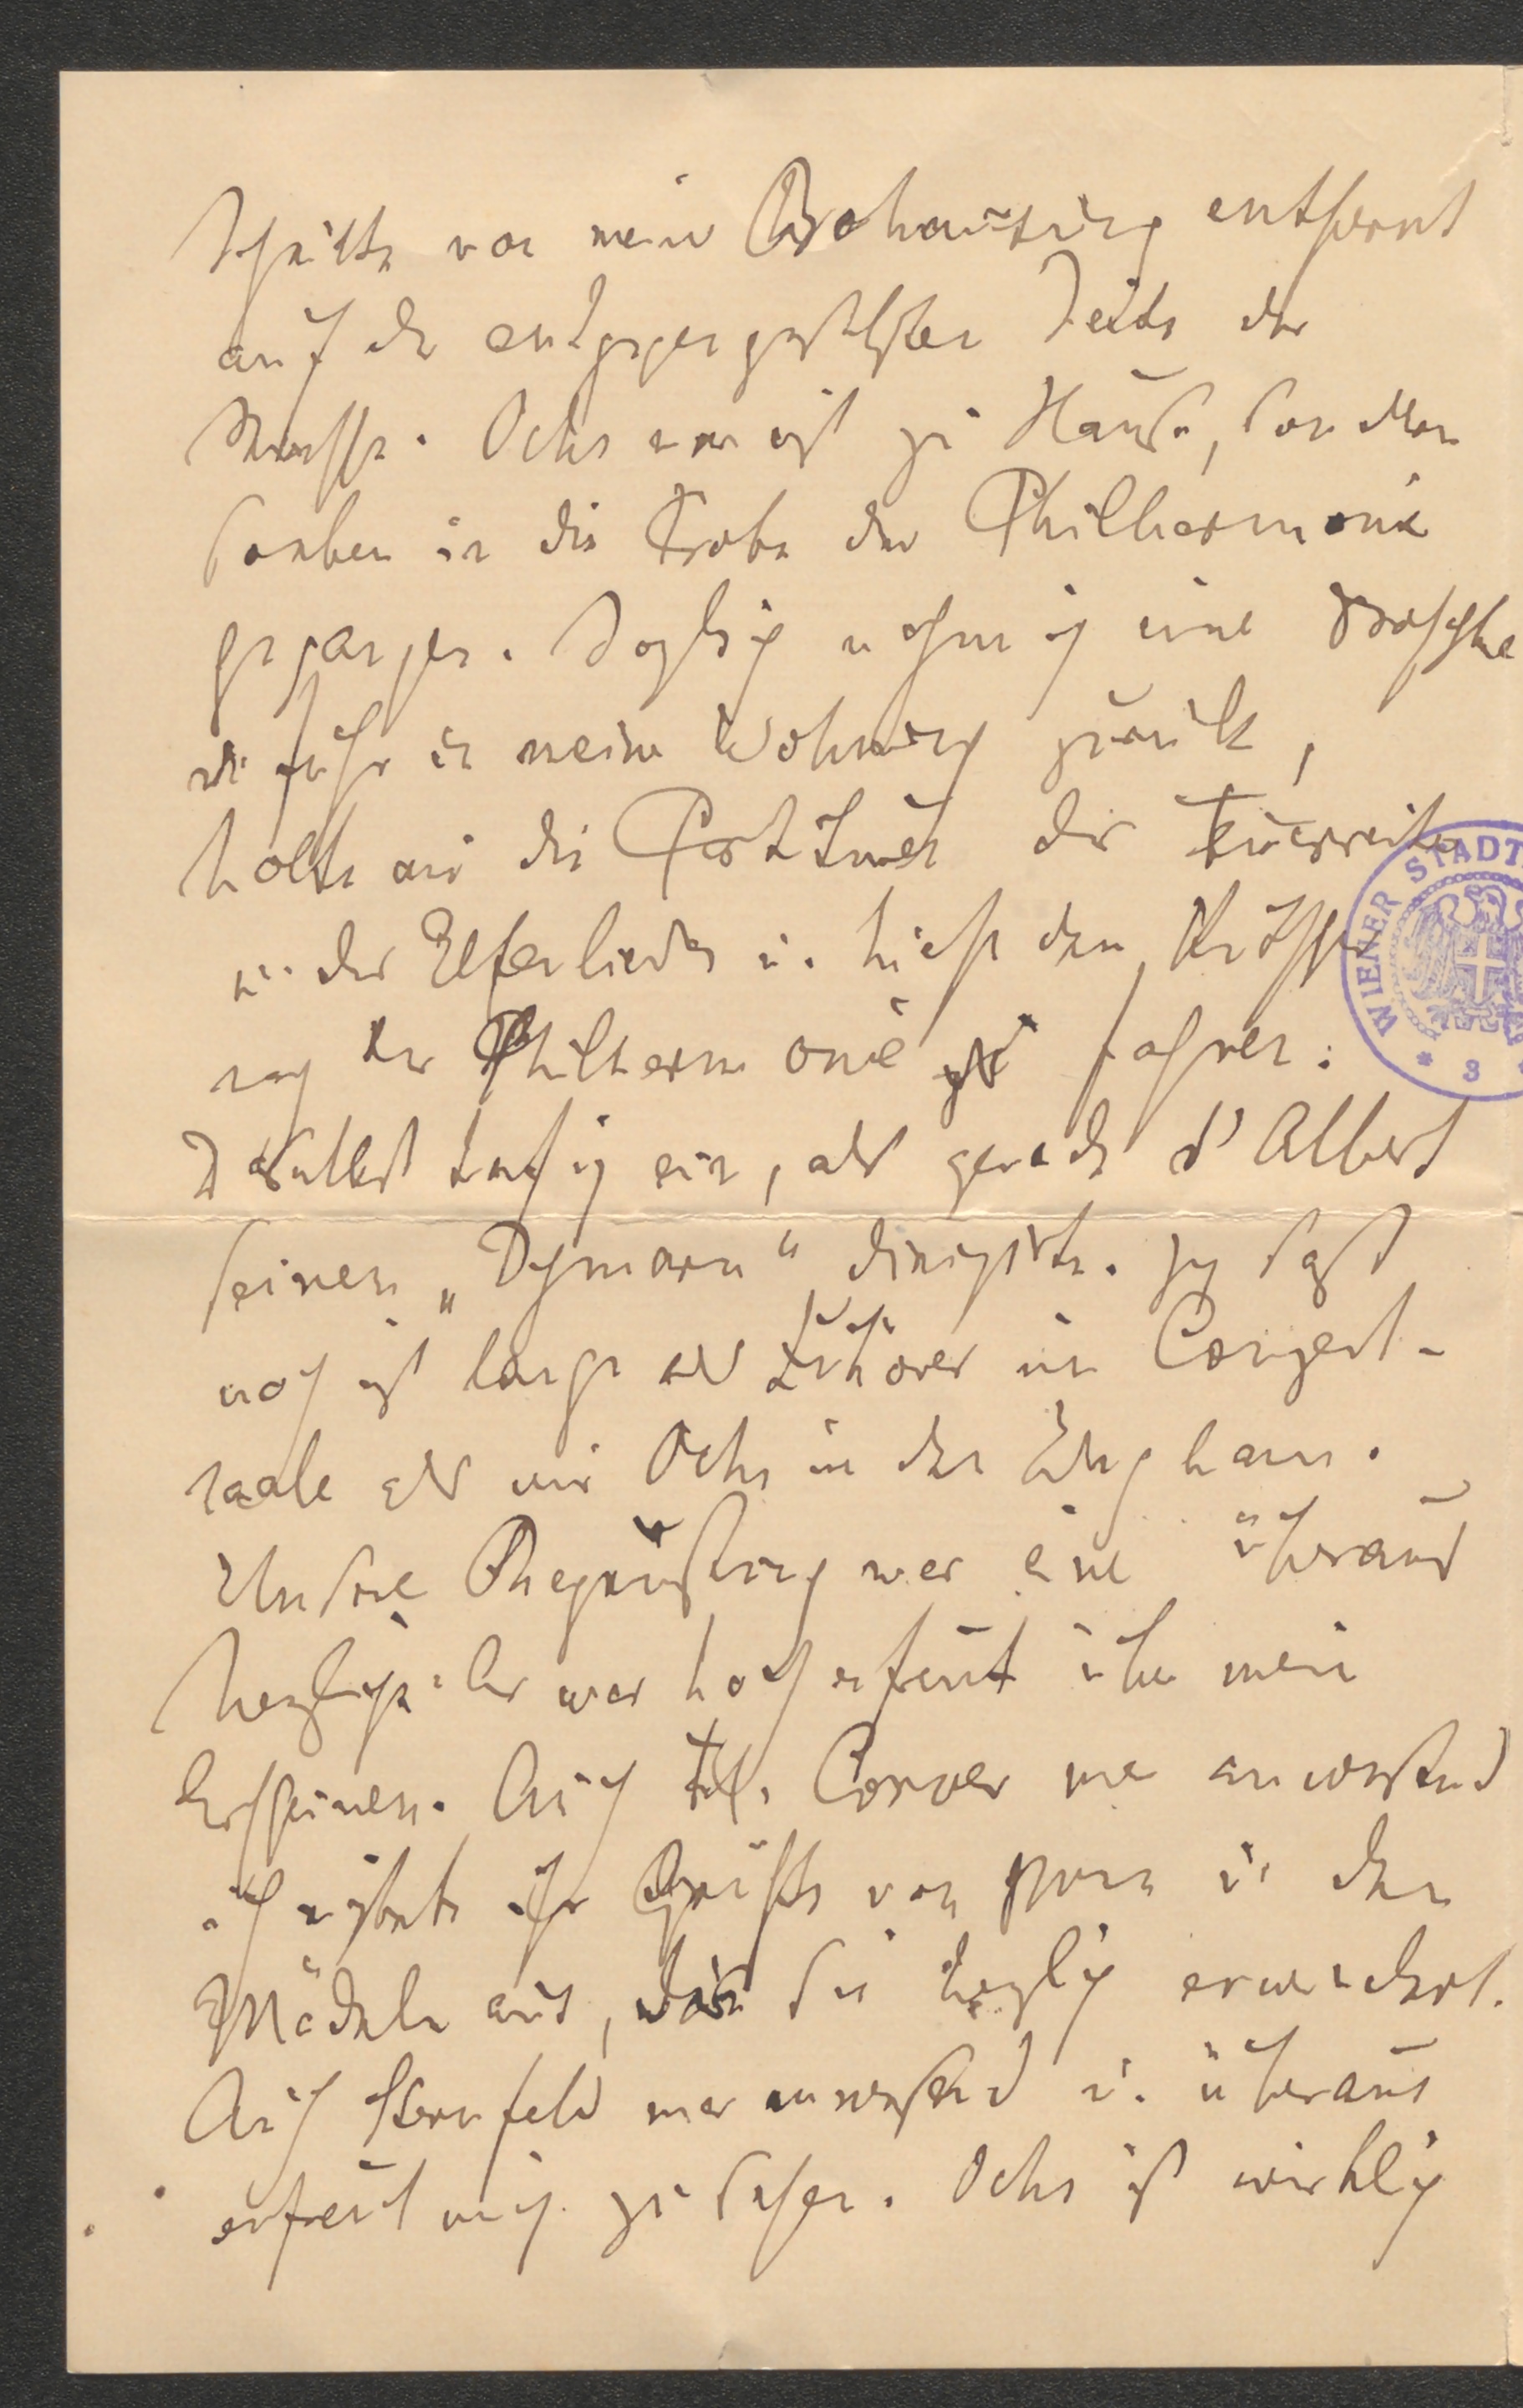 Schritte von meiner Behausung entfernt
auf der entgegengesetzten Seite der
Strasse. Ochs war nicht zu Hause, sondern
soeben in die Probe der Philharmonie
gegangen. Sogleich nahm ich eine Droschke
u. fuhr in meine Wohnung zurück,
holte mir die Partituren des Feuerreiter
u. des Elfenliedes u. hieß den Kutscher
nach der Philharmonie zu fahren.
Daselbst traf ich ein, als gerade d'Albert
seinen „Dymann“ dirigirte. Ich saß
noch nicht lange als Zuhörer im Conzert-
saale als mir Ochs in den Weg kam.
Unsere Begrüßung war eine überaus
herzliche. Er war hocherfreut über mein
Erscheinen. Auch Frl. Corver war anwesend
ich richtete ihr Grüße von Mama u. den
Mädeln aus, die sie herzlich erwidert.
Auch Sternfeld war anwesend u. überaus
erfreut mich zu sehen. Ochs ist wirklich
WIENER STADT
* 3